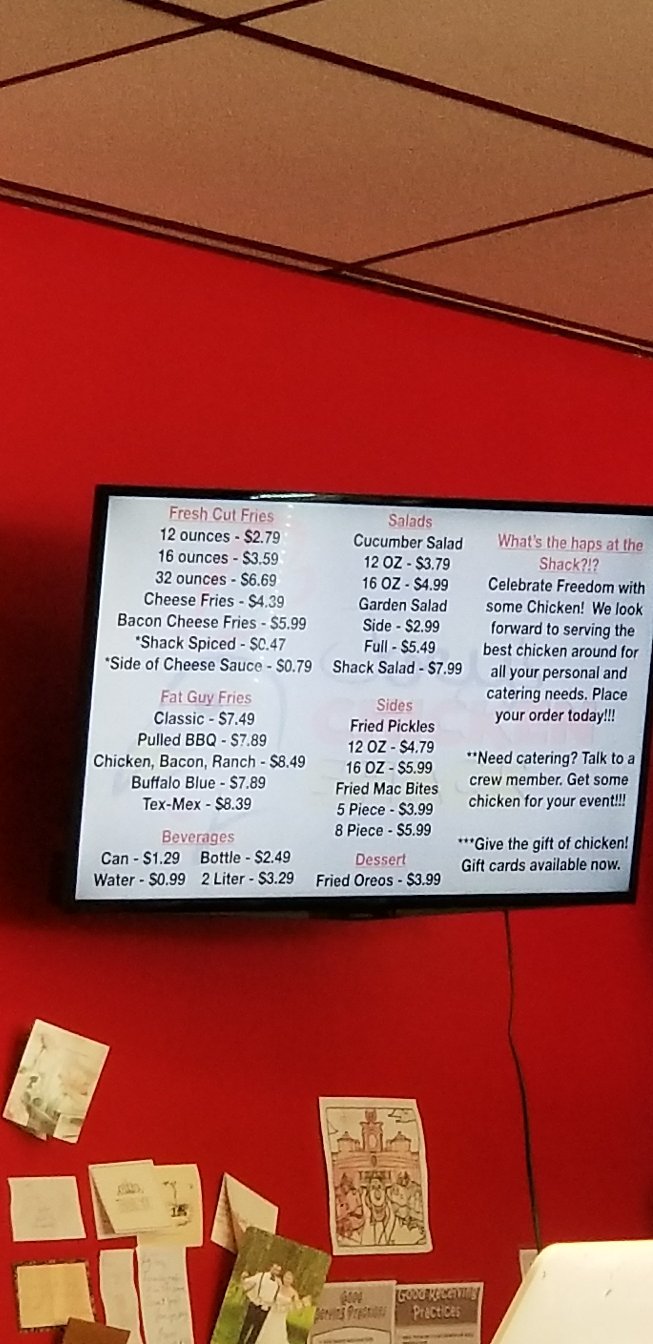 Fresh Cut Fries
12 ounces - $2.79
16 ounces - $3.59
32 ounces - $6.69
Cheese Fries - $4.39
Bacon Cheese Fries - $5.99
*Shack Spiced - $0.47
*Side of Cheese Sauce - $0.79
Fat Guy Fries
Classic - $7.49
Pulled BBQ - $7.89
Chicken, Bacon, Ranch - $8.49
Buffalo Blue - $7.89
Tex-Mex - $8.39
Beverages
Can - $1.29 Bottle - $2.49
Water - $0.99 2 Liter - $3.29
Salads
Cucumber Salad
12 OZ - $3.79
16 OZ - $4.99
Garden Salad
Side - $2.99
Full - $5.49
Shack Salad - $7.99
Sides
Fried Pickles
12 OZ - $4.79
16 OZ - $5.99
Fried Mac Bites
5 Piece - $3.99
8 Piece - $5.99
Dessert
Fried Oreos - $3.99
What's the haps at the
Shack?!?
Celebrate Freedom with
some Chicken! We look
forward to serving the
best chicken around for
all your personal and
catering needs. Place
your order today!!!
**Need catering? Talk to a
crew member. Get some
chicken for your event!!!
***Give the gift of chicken!
Gift cards available now.
Good
Serving Practices
Good Receiving
Practices